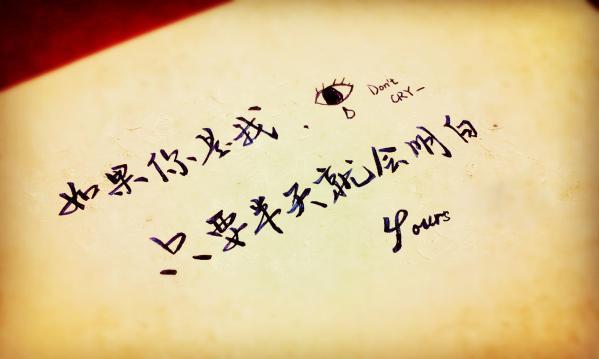 如果你是我.
Don't
CRY—
只要半天就会明白
Yours